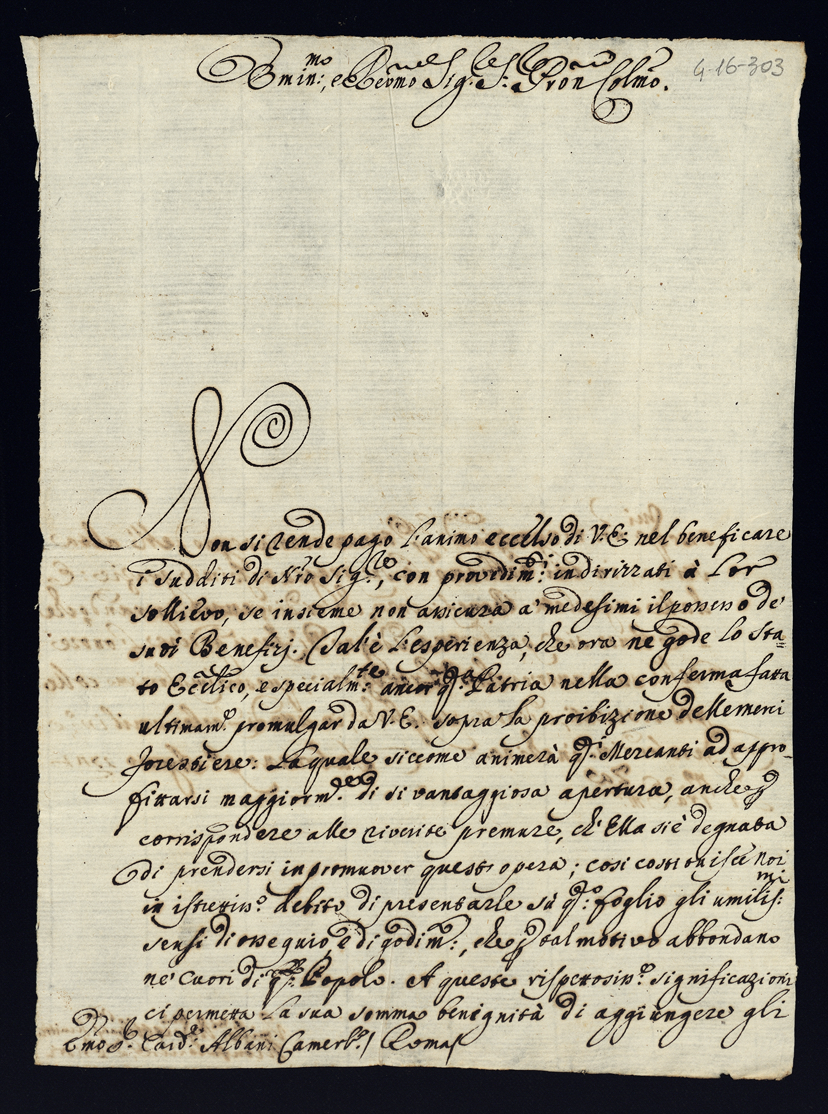 Emin:mo, e Revmo Sig:re Sr: Pron Colmo.
4-16-303
Non si rende pago l'animo eccelso di V.E. nel beneficare
i sudditi di Nro Sig:re, con providim:ti indirizzati à Lor
sollievo, se insieme non assicura a' medesimi il possesso de'
suoi Benefizj. Tal'è l'esperienza, che ora ne gode lo sta=
to Ecclico, e specialm:te ancor q:ta Patria nella conferma fatta
ultimam:e promulgar da V.E. sopra la proibizione delle merci
forestiere: La quale siccome animerà q:i Mercanti ad appro-
fittarsi maggiorm:te di si vantaggiosa apertura, anche p
corrispondere alle riverite premure, ch'Ella si è degnata
di prendersi in promuover quest'opera; cosi costituisce noi
in istrettiss:o debito di presentarle sù q:o foglio gli umiliss:mi
sensi di ossequio, e di godim:to, che p tal motivo abbondano
ne' Cuori di q:o Popolo. A queste rispettosiss:e significazioni
ci permetta la sua somma benignità di aggiungere gli
Emo Sr. Card: Albani Camerl:o / Roma